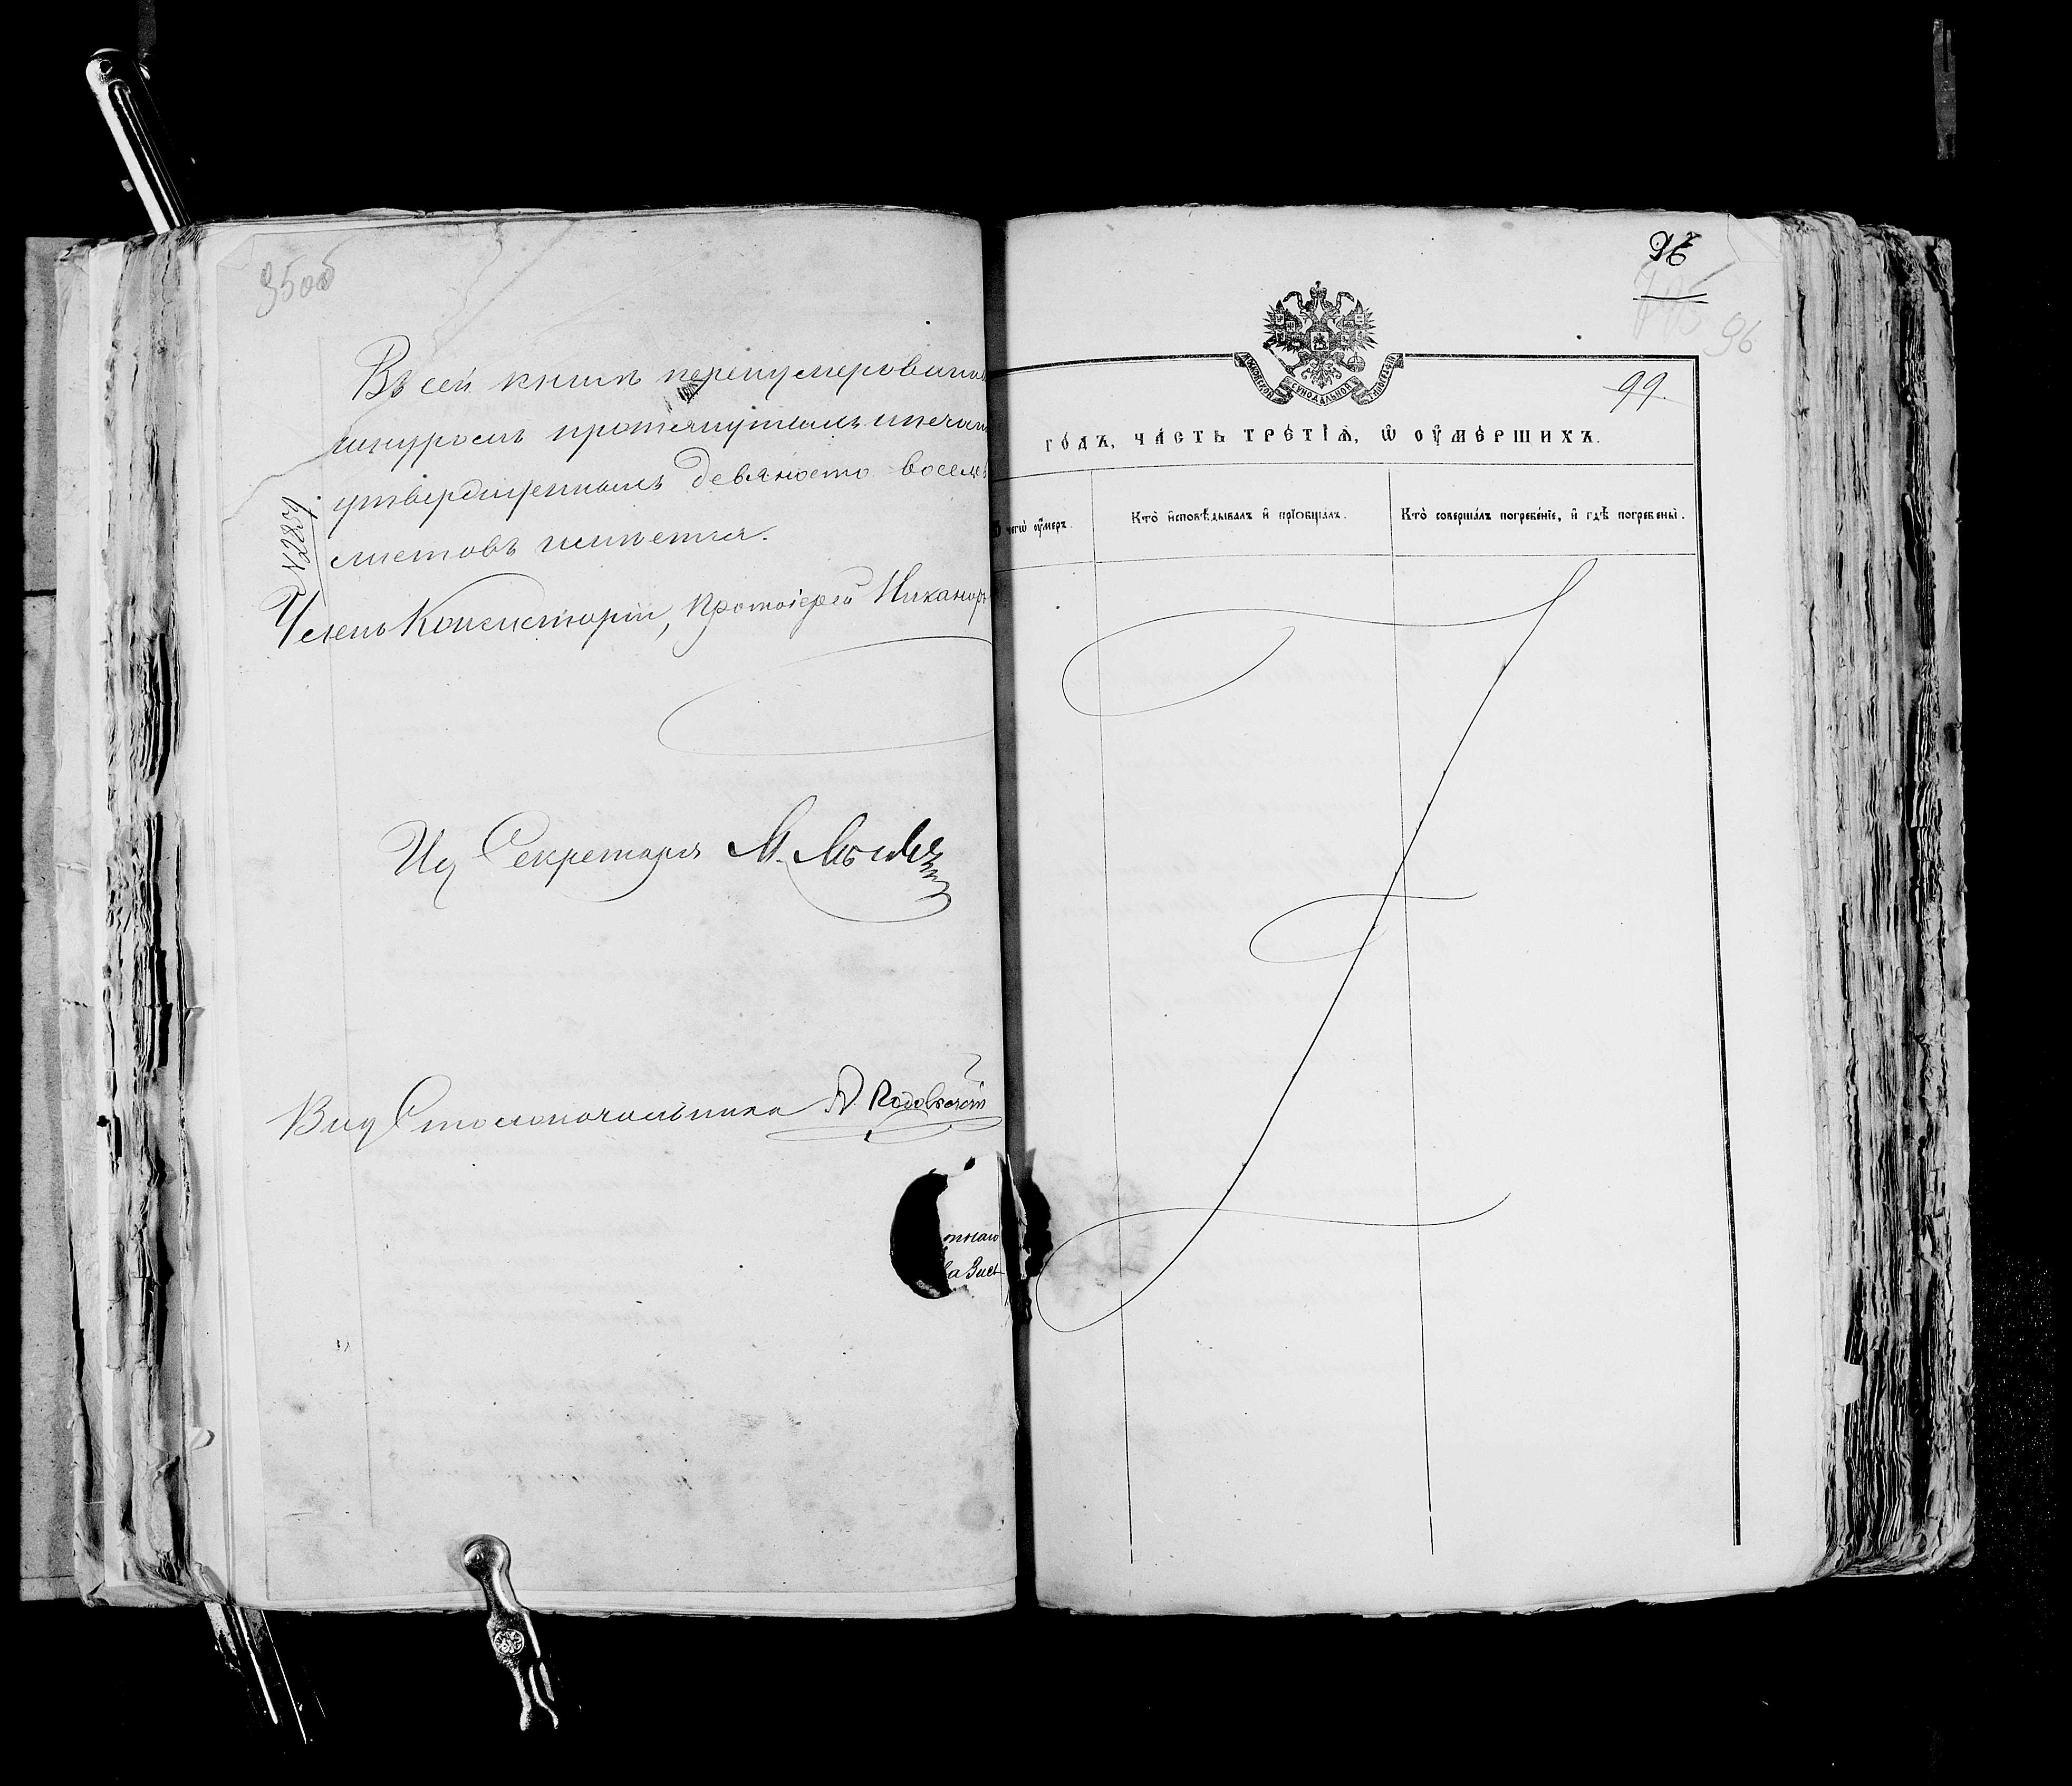 95об
Въ сей книгѣ перенумерованны
шнуромъ протянутымъ и печат
утвержденнымъ девяносто восемь
листовъ имѣется.
№ 3859
Членъ Консисторіи, Протоіерей Никаноръ
Ид Секретаря М.
Вид Столоначальника А.
тнаго
96
96
99.
МОСКОВСКОЙ СѴНОДАЛЬНОЙ ТѴПОГРАФІИ
го́дъ, ча́сть тре́тїѧ, ѡ҆ ᲂу҆ме́ршихъ.
чегѡ̀ ᲂу҆́меръ.
Кто̀ и҆сповѣ́дывалъ и҆ прїѡбща́лъ.
Кто̀ соверша́лъ погребе́нїе, и҆ гдѣ̀ погребены̀.